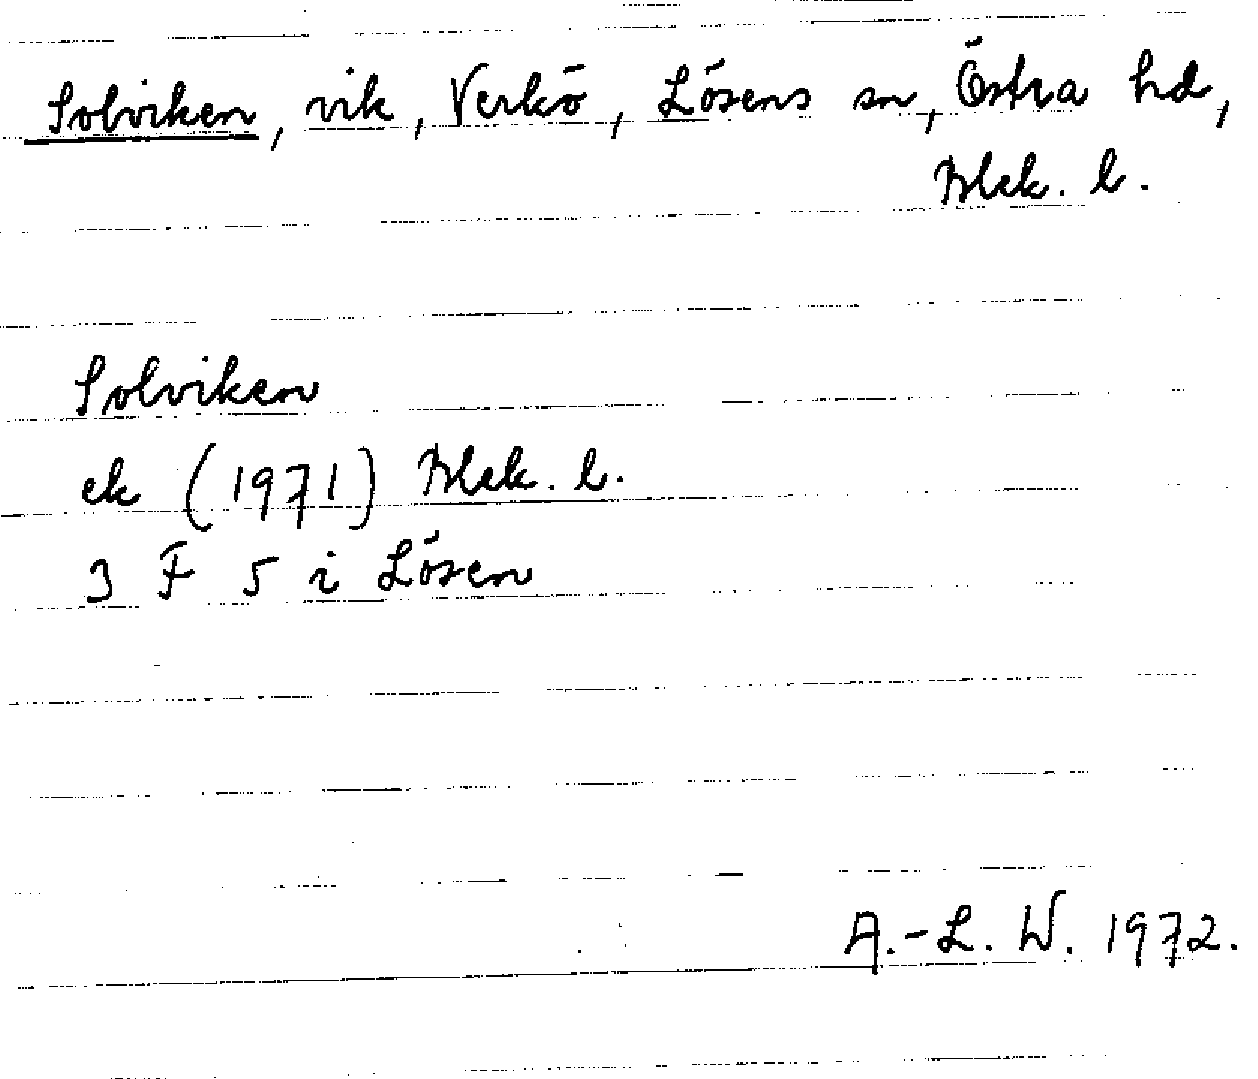 Solviken, vik, Verkö, Lösens sn, Östra hd,
Blek. l.
Solviken
ek (1971) Blek. l.
3 F 5 i Lösen
A.-L. W. 1972.